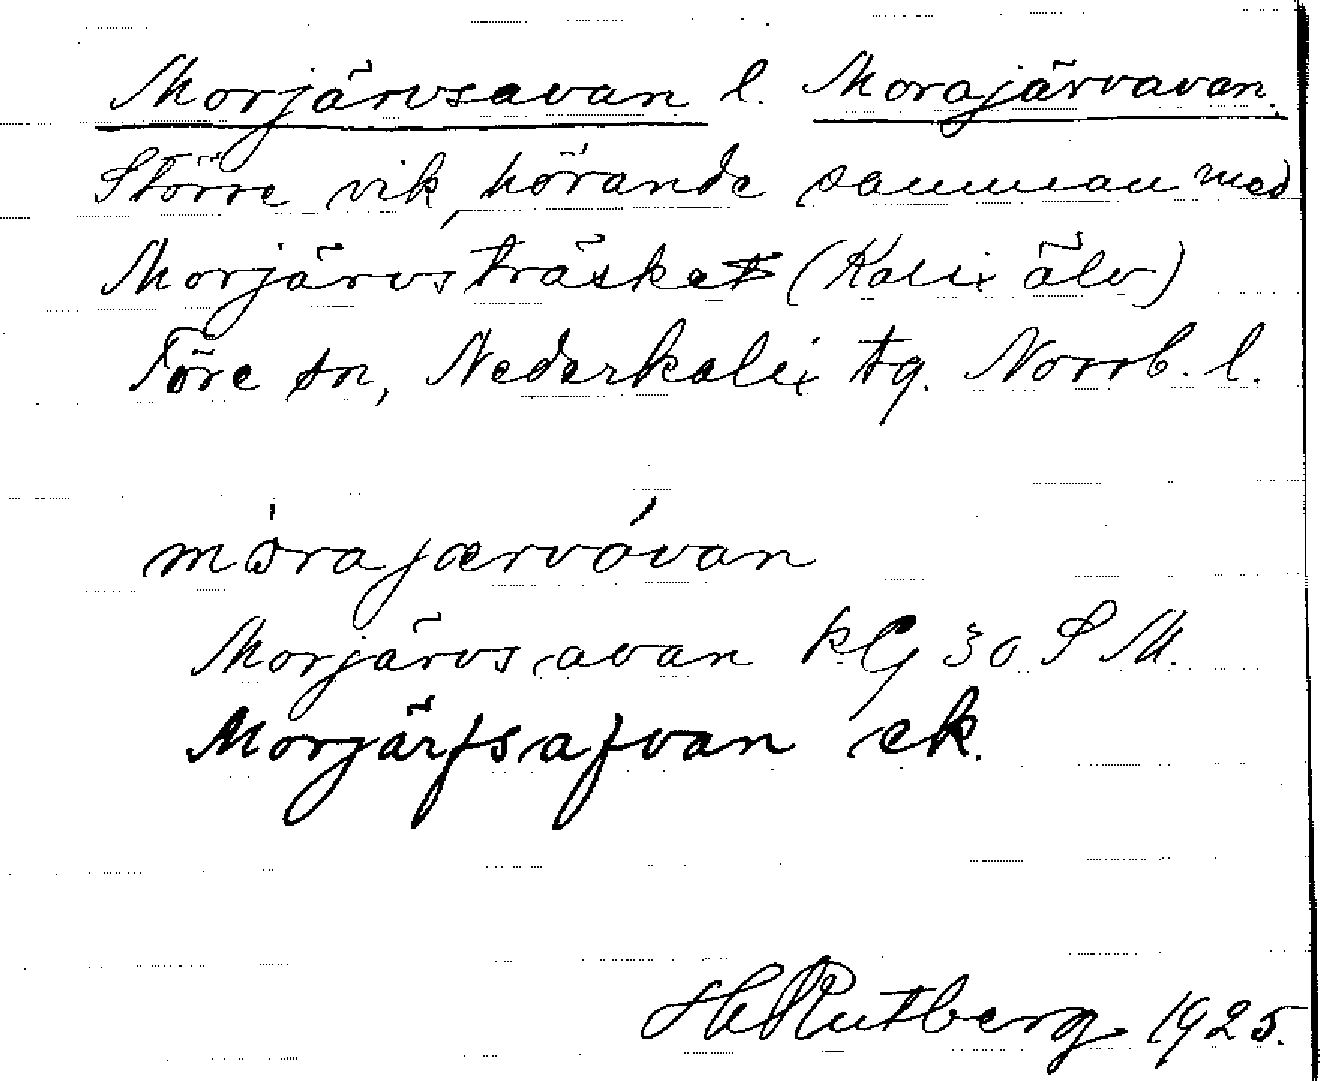 Morjärvsavan l. Morajärvavan.
Större vik, hörande samman med
Morjärvsträsket (Kalix älv)
Töre sn, Nederkalix tg. Norrb. l.
mòrajærvóvan
Morjärvsavan kG 30 S M.
Morjärfsafvan ek.
H Rutberg 1925.